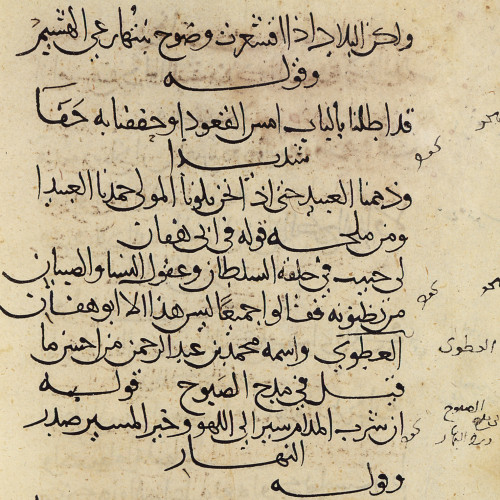 ولكن البلاد اذا اقشعرت وصوح نبتها رعي الهشيم
وقوله
قد اطلنا بالباب امس القعودا وجفينا به جفا
شديدا
وذممنا العبيد حتى اذا نحن بلونا المولى حمدنا العبيدا
ومن ملحه قوله في ابي هفان
لي حبيب في خلقة السلطان وعقول النسا والصبيان
من تظنونه فقالوا جميعا ليس هذا الا ابو هفان
العطوي واسمه محمد بن عبد الرحمن من احسن ما
قيل في مدح الصبوح قوله
ان شرب المدام سير الى اللهو وخير المسير صدر
النهار
وقوله
العطوي
الصبوح